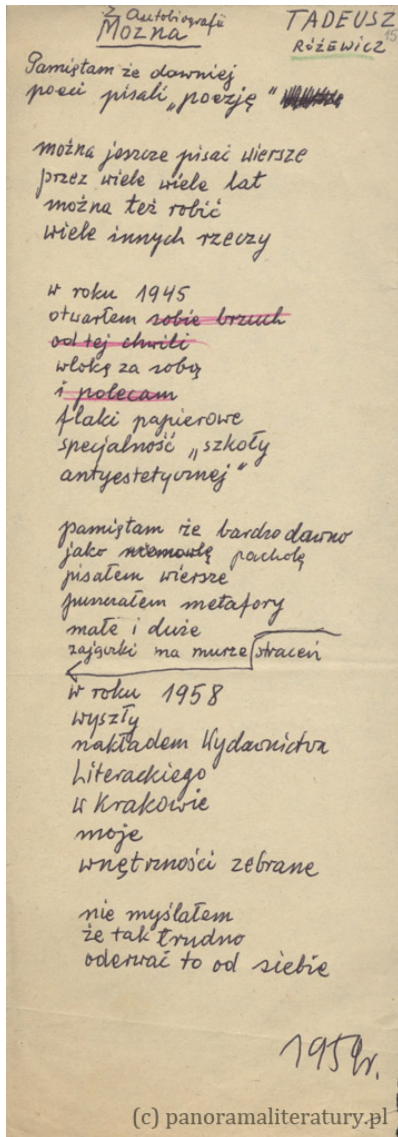 z Autobiografii
MOŻNA
TADEUSZ
RÓŻEWICZ
15
Pamiętam że dawniej
poeci pisali „poezję"
można jeszcze pisać wiersze
przez wiele wiele lat
można też robić
wiele innych rzeczy
w roku 1945
otwarłem sobie brzuch
od tej chwili
wlokę za sobą
i polecam
flaki papierowe
specjalność „szkoły
antyestetycznej"
pamiętam że bardzo dawno
jako niemowlę pacholę
pisałem wiersze
puszczałem metafory
małe i duże
zajączki na murze straceń
w roku 1958
wyszły
nakładem Wydawnictwa
Literackiego
w Krakowie
moje
wnętrzności zebrane
nie myślałem
że tak trudno
oderwać to od siebie
1959r.
(c) panoramaliteratury.pl